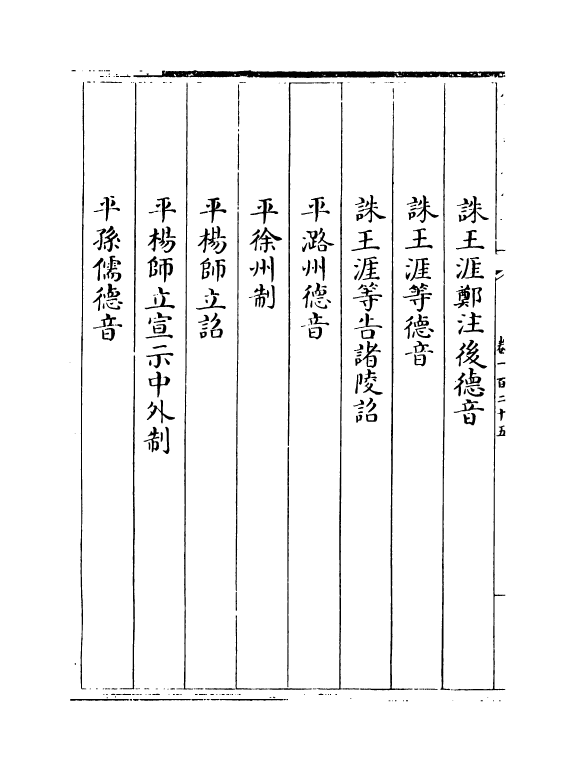 卷一百二十五
誅王涯鄭注後德音
誅王涯等德音
誅王涯等告諸陵詔
平潞州德音
平徐州制
平楊師立詔
平楊師立宣示中外制
平孫儒德音